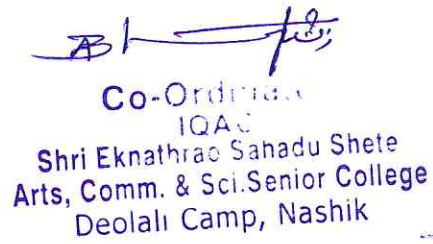 Co-Ordinator
IQAC
Shri Eknathrao Sahadu Shete
Arts, Comm. & Sci.Senior College
Deolali Camp, Nashik